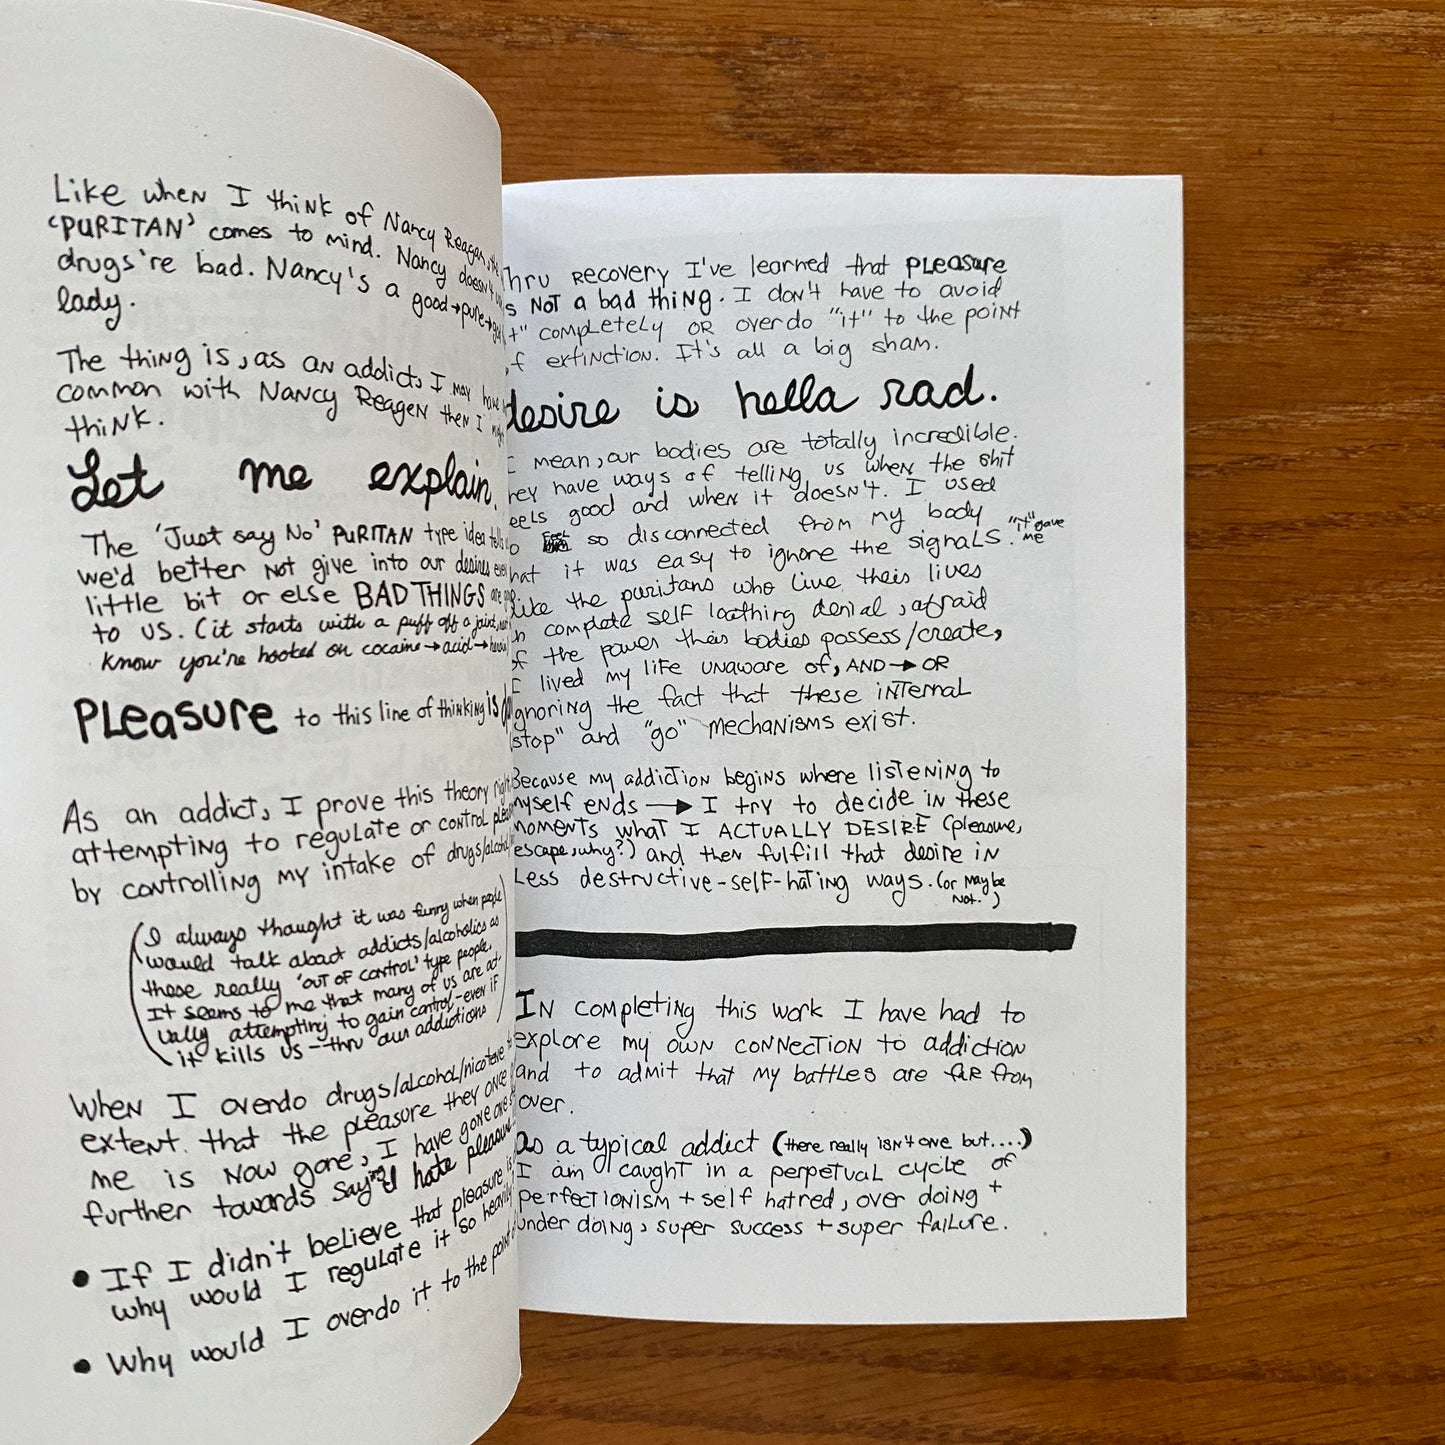 Like when I think of Nancy Reagan, the
'PURITAN' comes to mind. Nancy doesn't
drugs're bad. Nancy's a good→pure→
lady.
The thing is, as an addict, I may have
common with Nancy Reagen then I might
think.
Let me explain.
The 'Just say No' PURITAN type idea tells
we'd better not give into our desires even
little bit or else BAD THINGS are
to us. (it starts with a puff off a joint,
know you're hooked on cocaine→acid→heroin
PLEASURE to this line of thinking is
As an addict, I prove this theory right
attempting to regulate or control
by controlling my intake of drugs/alcohol
(I always thought it was funny when people
would talk about addicts/alcoholics as
these really 'out of control' type people.
It seems to me that many of us are act-
ually attempting to gain control-even if
it kills us--thru our addictions)
When I overdo drugs/alcohol/nicotene
extent that the pleasure they once
me is now gone, I have gone one
further towards saying I hate pleasure
• If I didn't believe that pleasure is
why would I regulate it so heavily
• Why would I overdo it to the point
Thru recovery I've learned that PLEASURE
is NOT a bad thing. I don't have to avoid
"it" completely or overdo "it" to the point
of extinction. It's all a big sham.
desire is hella rad.
I mean, our bodies are totally incredible.
They have ways of telling us when the shit
feels good and when it doesn't. I used
to feel so disconnected from my body
that it was easy to ignore the signals "it" gave me.
Like the puritans who live their lives
in complete self loathing denial, afraid
of the power their bodies possess/create,
I lived my life unaware of, AND→OR
ignoring the fact that these internal
"stop" and "go" mechanisms exist.
Because my addiction begins where listening to
myself ends → I try to decide in these
moments what I ACTUALLY DESIRE (pleasure,
escape, why?) and then fulfill that desire in
less destructive-self-hating ways. (or maybe
not.)
In completing this work I have had to
explore my own connection to addiction
and to admit that my battles are far from
over.
as a typical addict (there really isn't one but....)
I am caught in a perpetual cycle of
perfectionism + self hatred, over doing +
under doing, super success + super failure.